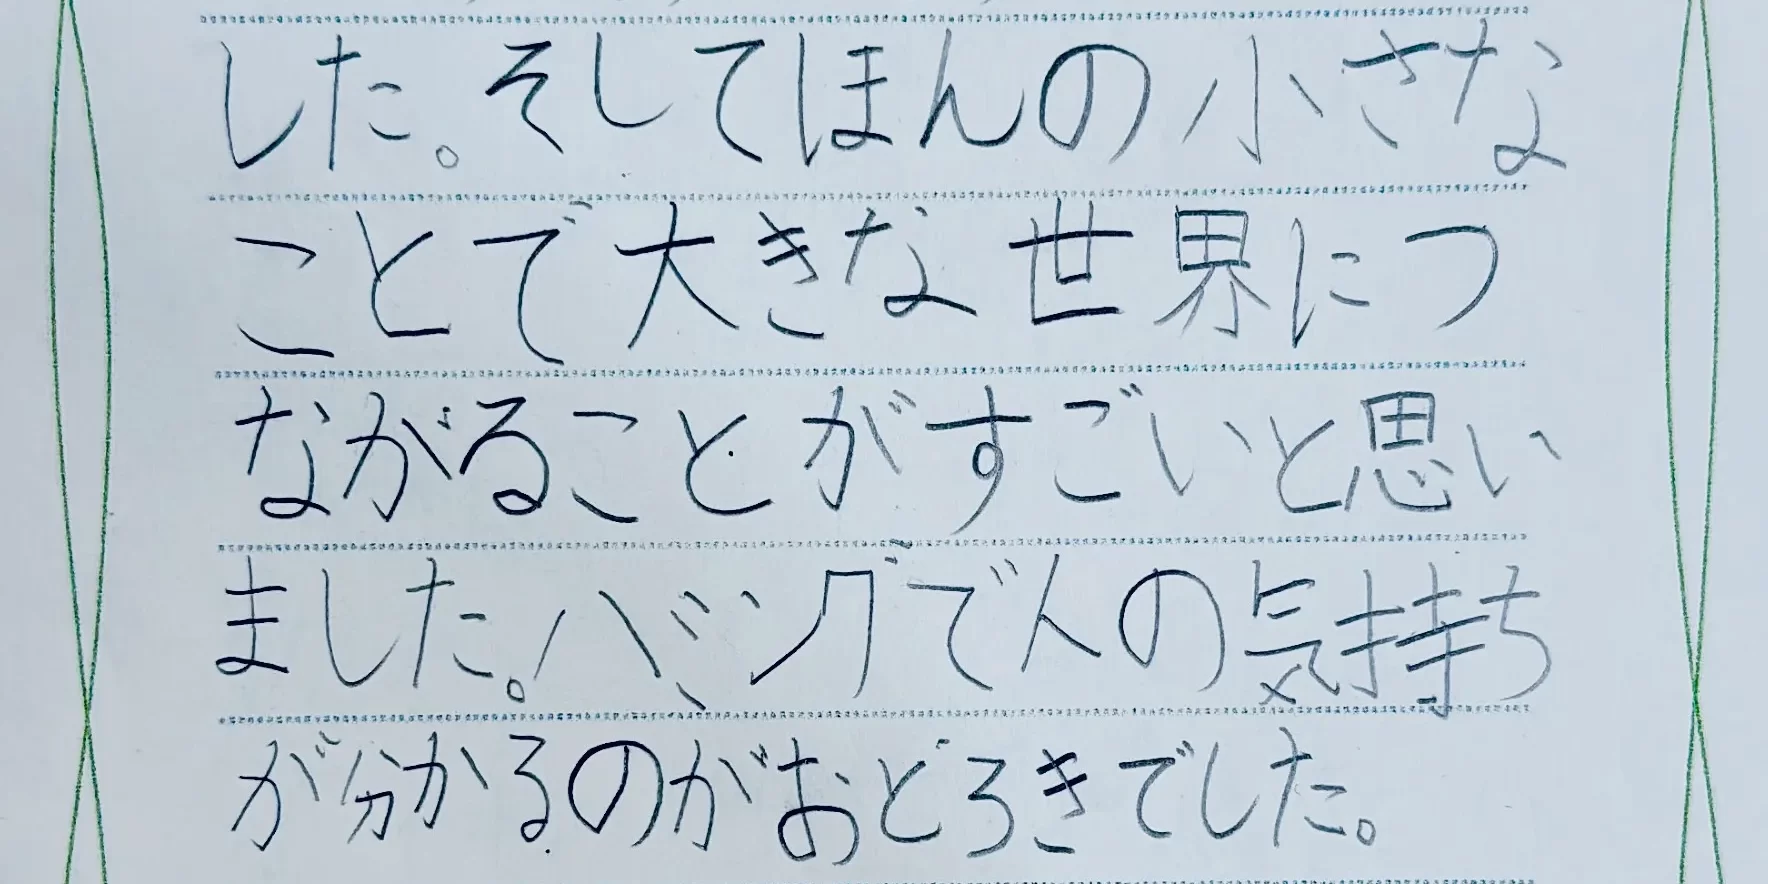 した。そしてほんの小さな
ことで大きな世界につ
ながることがすごいと思い
ました。ハミングで人の気持ち
が分かるのがおどろきでした。